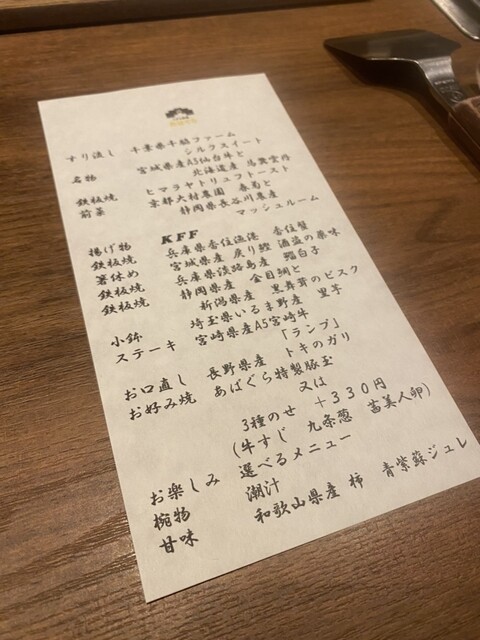 すり流し 千葉県千脇ファーム
シルクスイート
名物 宮城県産A5仙台牛と
北海道産 馬糞雲丹
ヒマラヤトリュフトースト
鉄板焼 京都大村農園 春菊と
前菜 静岡県長谷川農産
マッシュルーム
揚げ物 KFF
鉄板焼 兵庫県香住漁港 香住蟹
箸休め 宮城県産 戻り鰹 酒盗の薬味
鉄板焼 兵庫県淡路島産 鱧白子
鉄板焼 静岡県産 金目鯛と
新潟県産 黒舞茸のビスク
小鉢 埼玉県いるま野産 里芋
ステーキ 宮崎県産A5宮崎牛
「ランプ」
お口直し 長野県産 トキのガリ
お好み焼 あばぐら特製豚玉
又は
3種のせ +330円
(牛すじ 九条葱 苗美人卵)
お楽しみ 選べるメニュー
椀物 潮汁
甘味 和歌山県産 柿 青紫蘇ジュレ